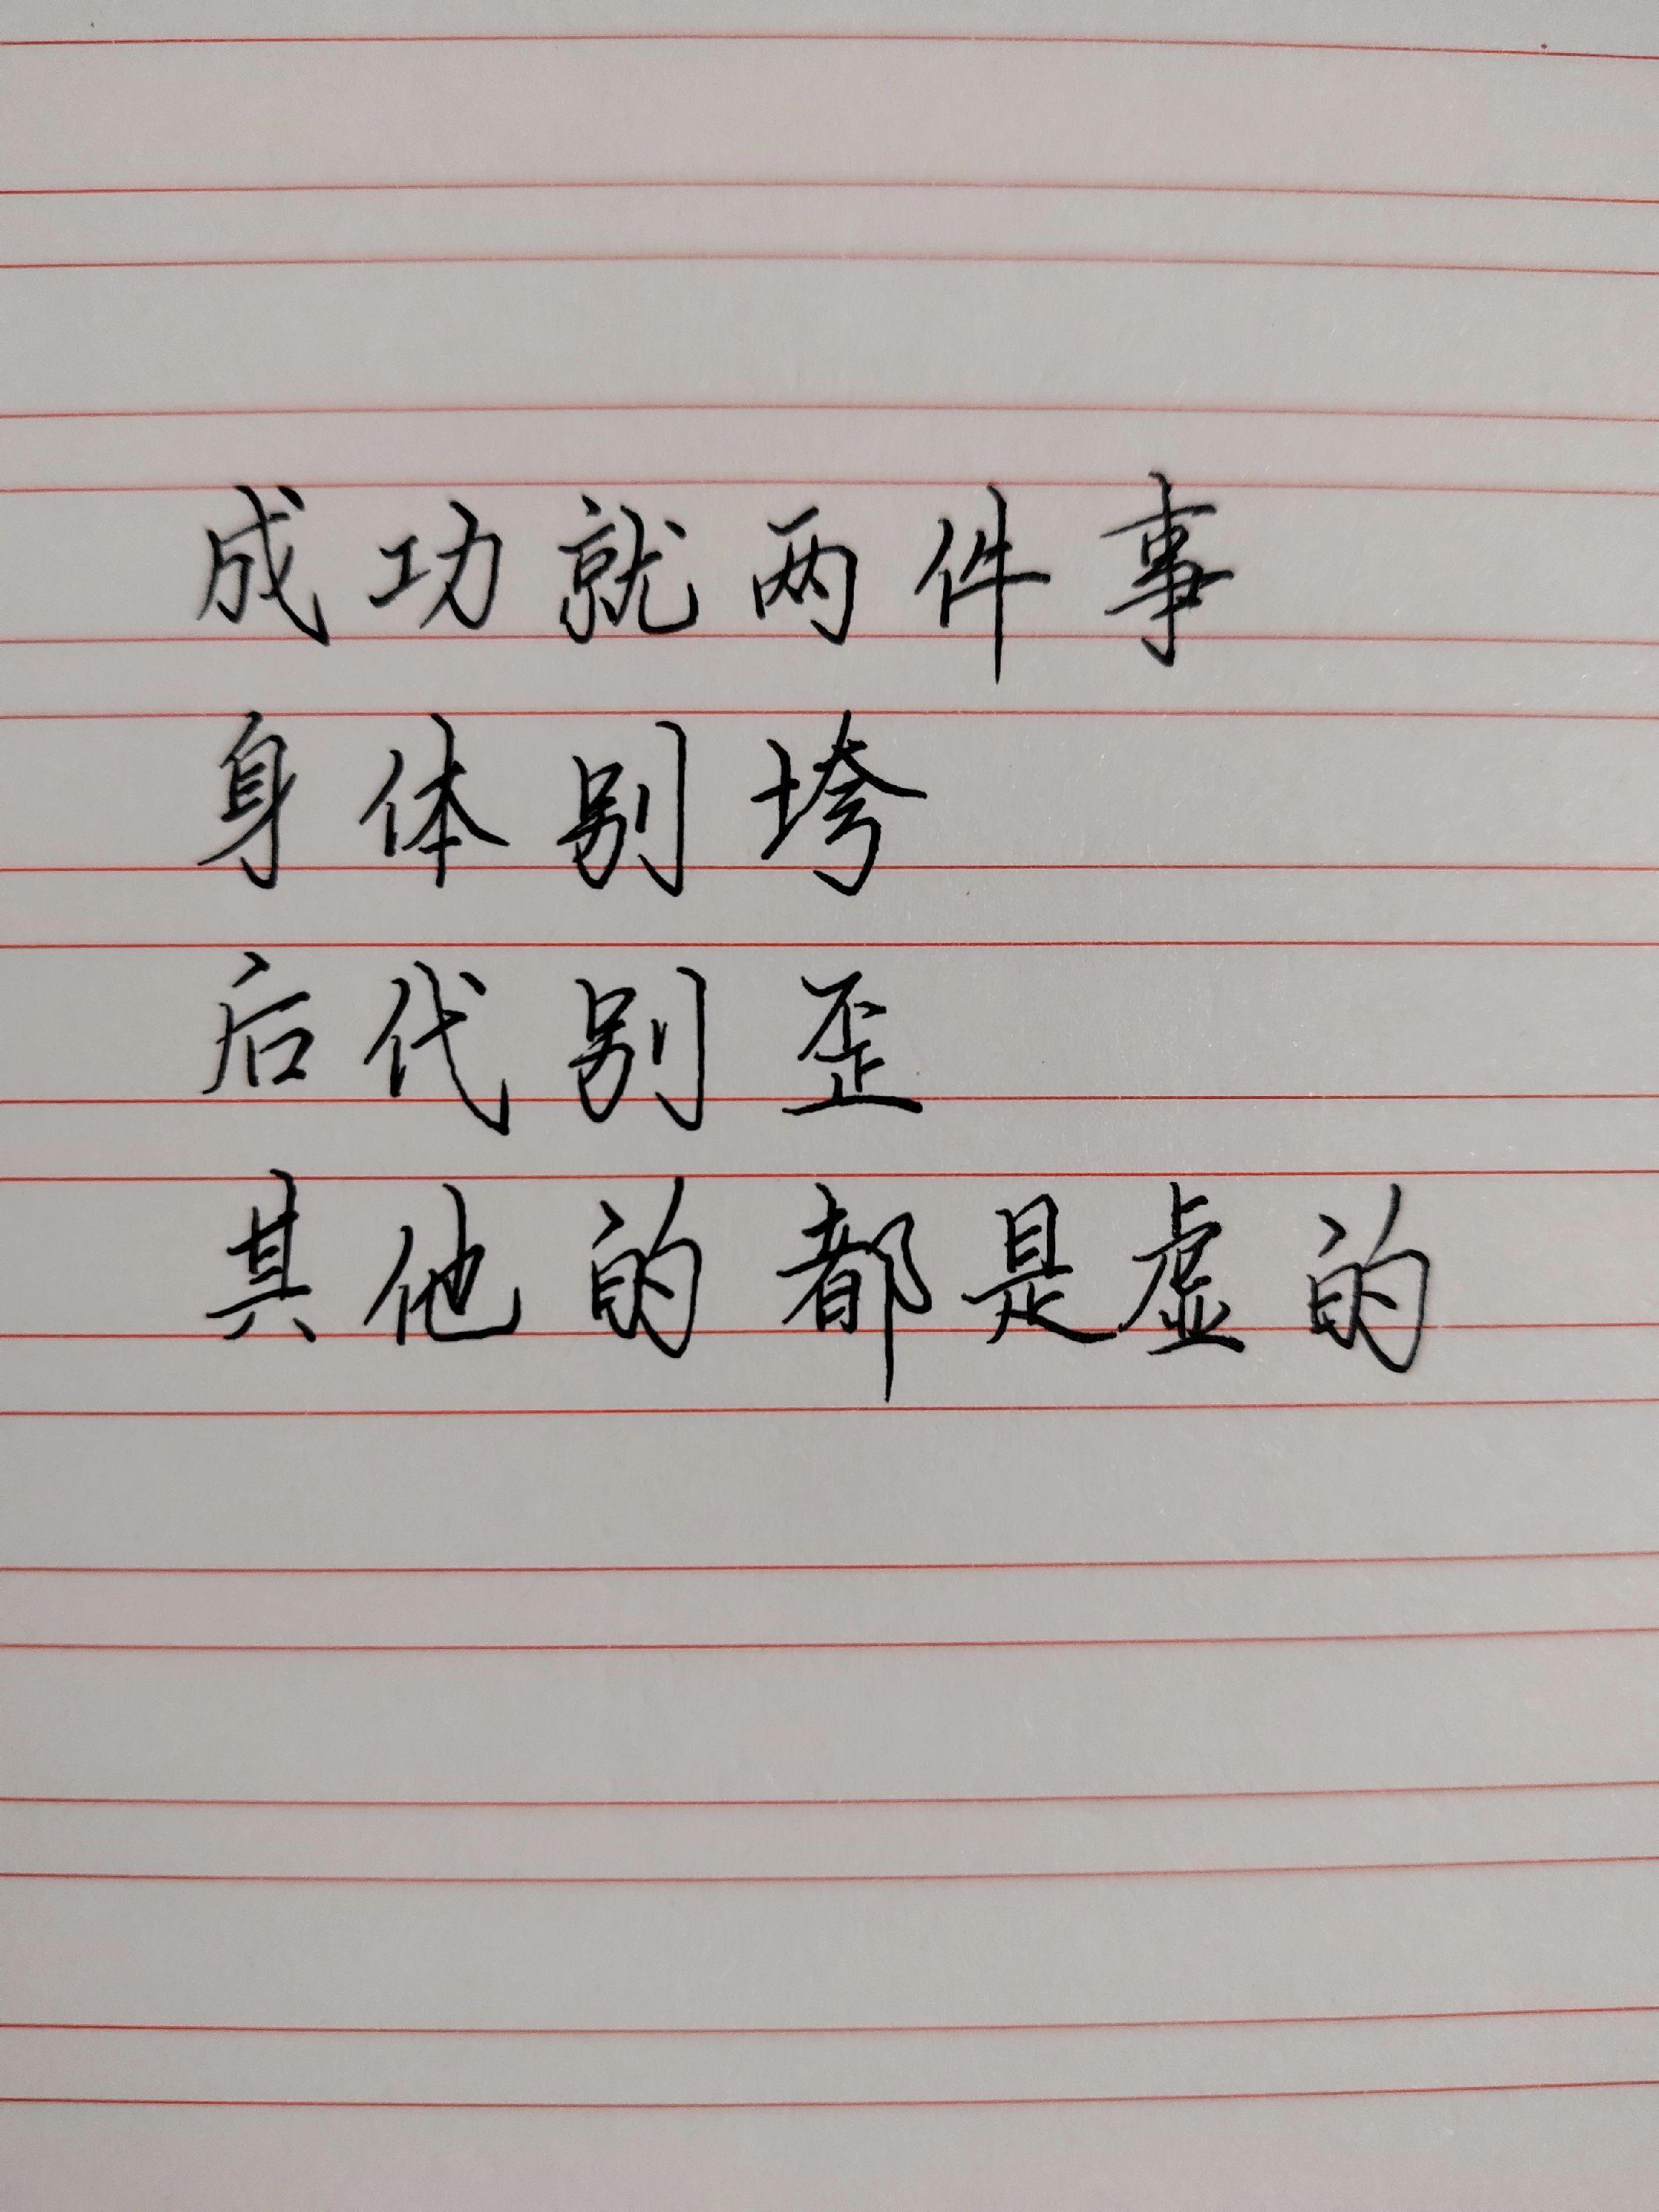 成功就两件事
身体别垮
后代别歪
其他的都是虚的